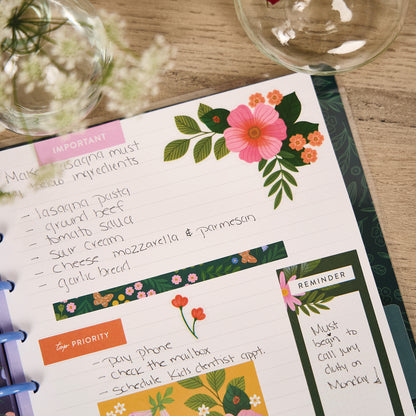 IMPORTANT
Make lasagna must
ingredients
- lasagna pasta
- ground beef
- tomato sauce
- sour cream
- cheese mozzarella & parmesan
- garlic bread
Top PRIORITY
- pay phone
- check the mailbox
- schedule kids dentist appt.
REMINDER
Must
begin to
call jury
duty on
Monday!